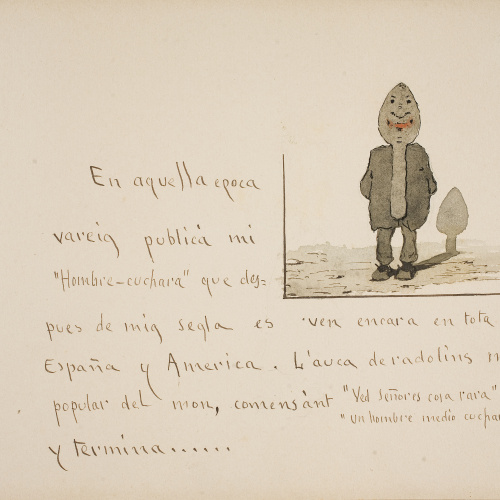 En aquella epoca
vareig publicá mi
"Hombre-cuchara" que des=
pues de mig segla es ven encara en tota
España y America. L'auca de radolins m
popular del mon, comensánt "Ved señores cosa rara"
"un hombre medio cuchar
y termina......